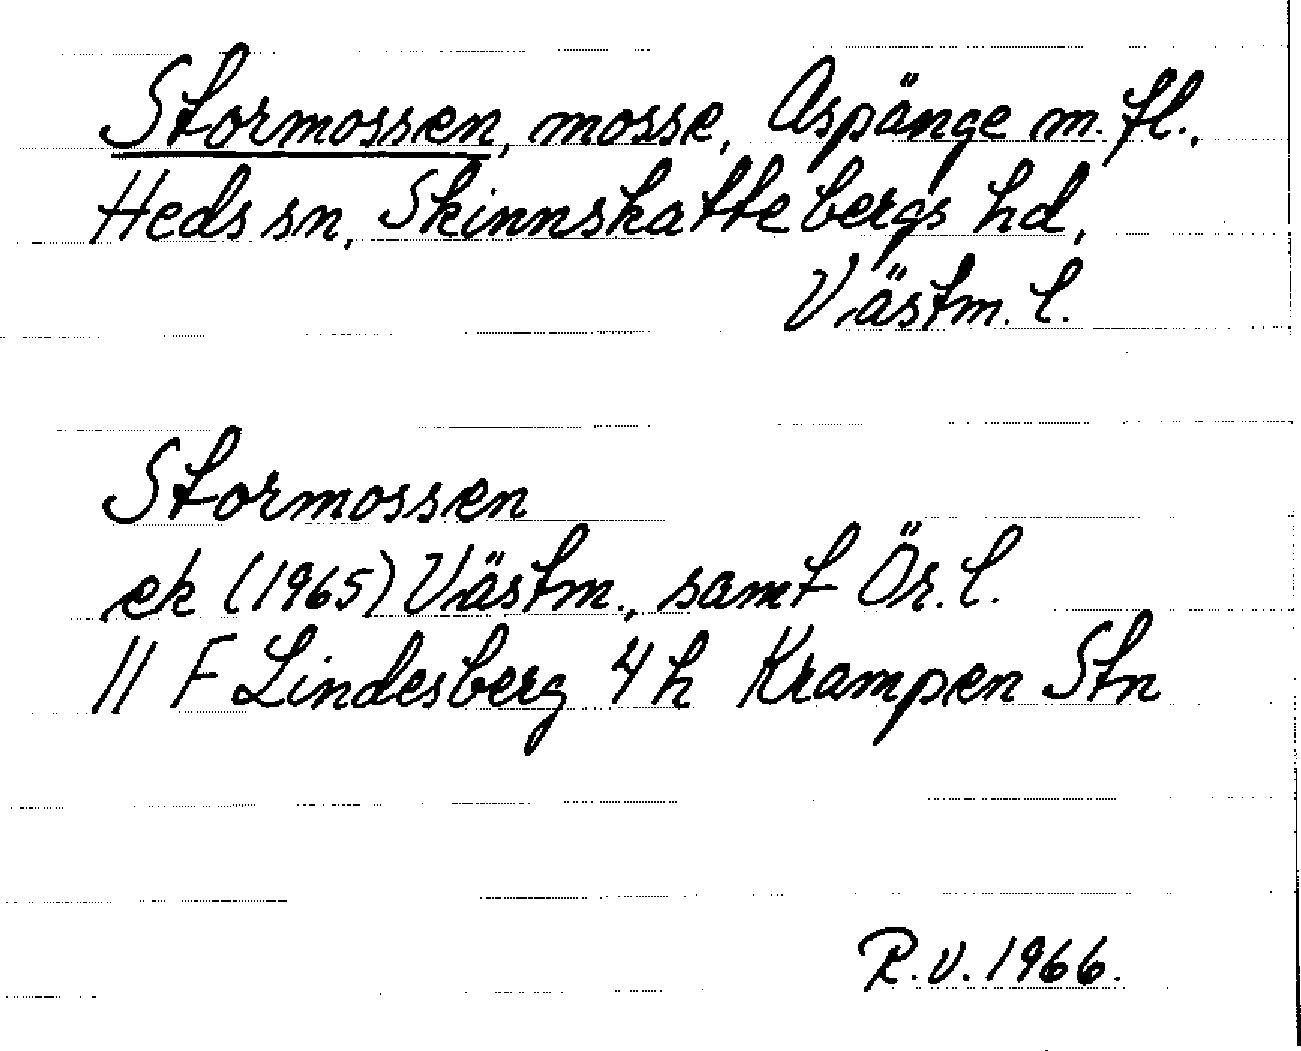 Stormossen, mosse, Aspänge m. fl.,
Heds sn, Skinnskattebergs hd,
Västm. l.
Stormossen
ek (1965) Västm., samt Ör. l.
11 F Lindesberg 4 h Krampen Stn
R.V. 1966.